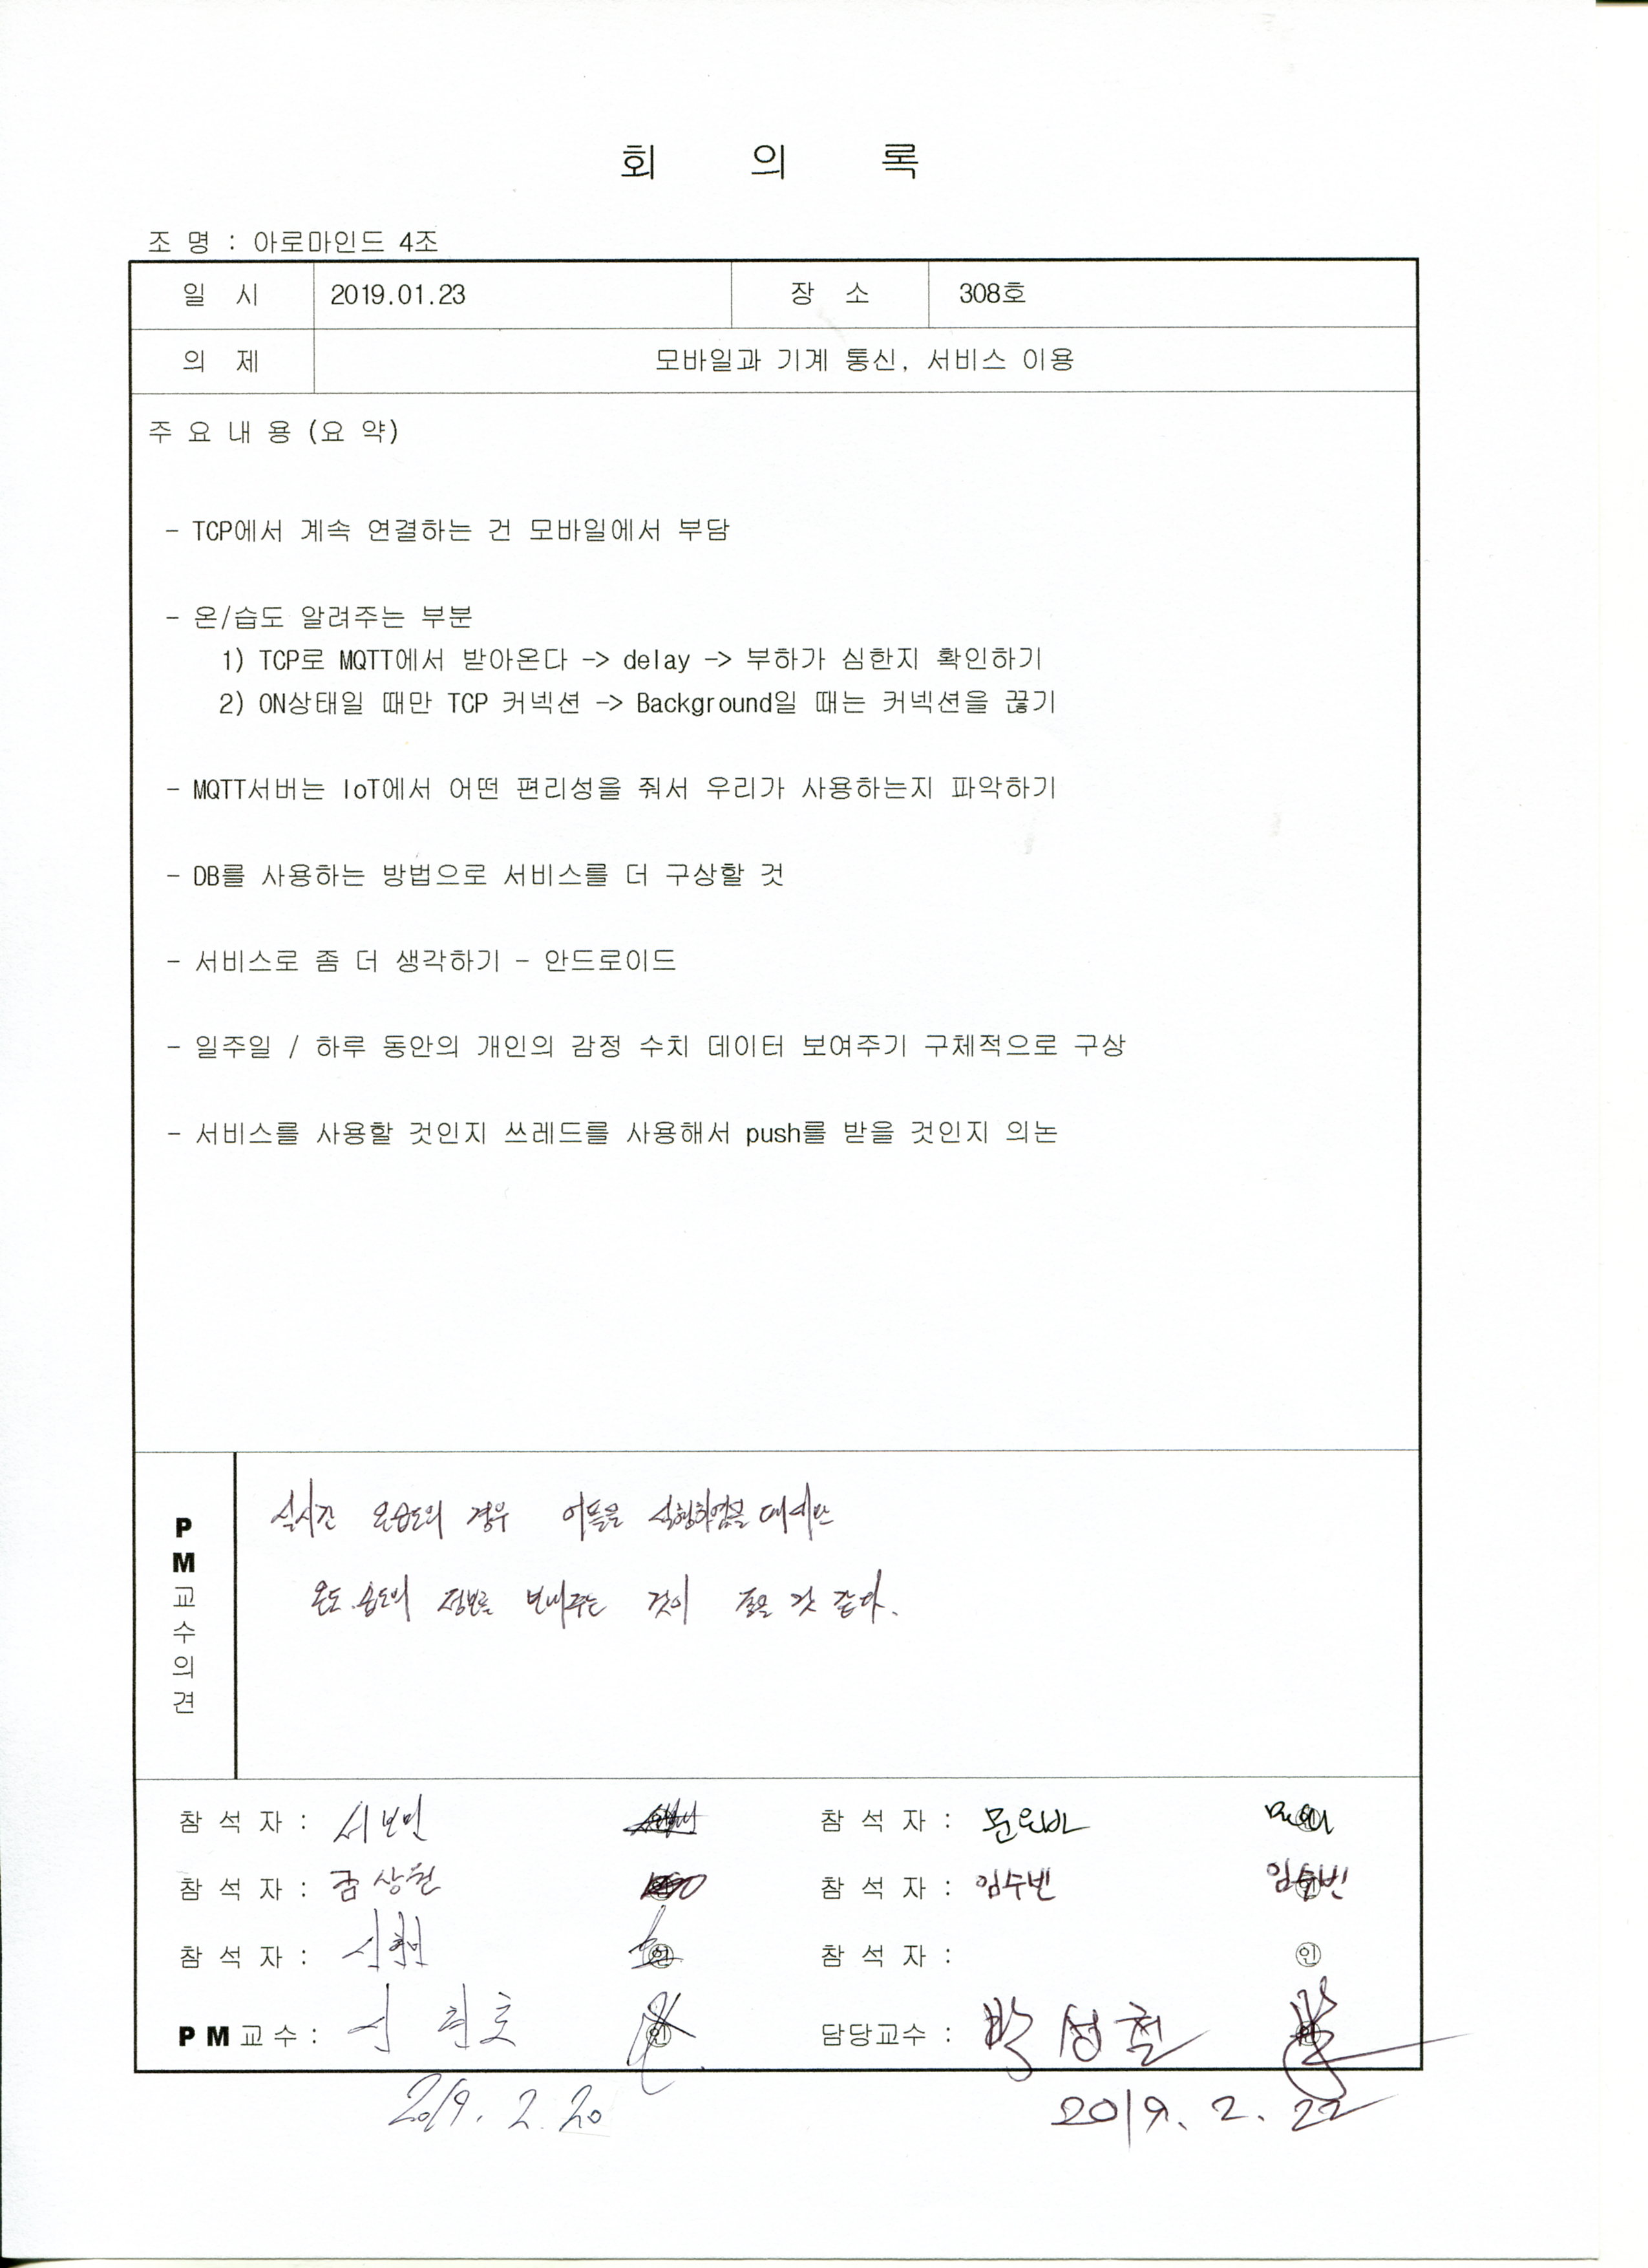 회 의 록
조 명 : 아로마인드 4조
일 시 2019.01.23 장 소 308호
의 제 모바일과 기계 통신, 서비스 이용
주 요 내 용 (요 약)
- TCP에서 계속 연결하는 건 모바일에서 부담
- 온/습도 알려주는 부분
1) TCP로 MQTT에서 받아온다 -> delay -> 부하가 심한지 확인하기
2) ON상태일 때만 TCP 커넥션 -> Background일 때는 커넥션을 끊기
- MQTT서버는 IoT에서 어떤 편리성을 줘서 우리가 사용하는지 파악하기
- DB를 사용하는 방법으로 서비스를 더 구상할 것
- 서비스로 좀 더 생각하기 - 안드로이드
- 일주일 / 하루 동안의 개인의 감정 수치 데이터 보여주기 구체적으로 구상
- 서비스를 사용할 것인지 쓰레드를 사용해서 push를 받을 것인지 의논
PM교수의견
실시간 온습도의 경우 어플을 실행하였을 때에만
온도.습도의 정보를 보내주는 것이 좋을 것 같다.
참 석 자 : 서보민 참 석 자 :
참 석 자 : 금상원 참 석 자 : 임수빈 임수빈
참 석 자 : 참 석 자 : 인
PM교수 : 인 담당교수 : 박성철
2019. 2. 20 2019. 2. 22